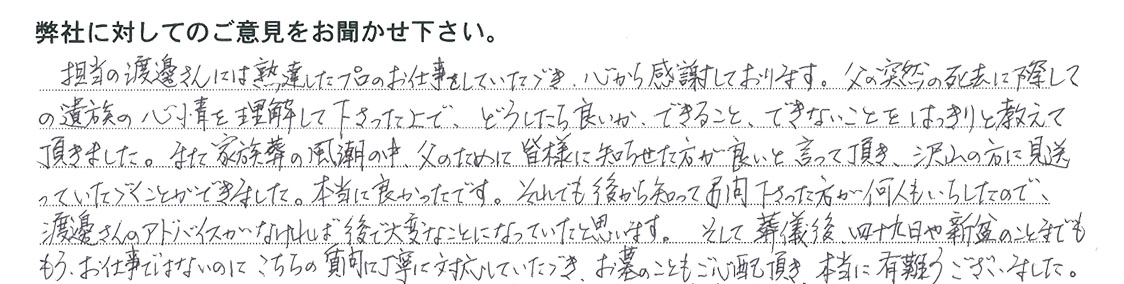 弊社に対してのご意見をお聞かせ下さい。
担当の渡邊さんには熟達したプロのお仕事をしていただき、心から感謝しております。父の突然の死去に際して
の遺族の心情を理解して下さった上で、どうしたら良いか、できること、できないことをはっきりと教えて
頂きました。また家族葬の風潮の中、父のために皆様に知らせた方が良いと言って頂き、沢山の方に見送
っていただくことができました。本当に良かったです。それでも後から知って弔問下さった方が何人もいらしたので、
渡邊さんのアドバイスがなければ後で大変なことになっていたと思います。そして葬儀後、四十九日や新盆のことまでも
もう、お仕事ではないのにこちらの質問に丁寧に対応していただき、お墓のこともご心配頂き、本当に有難うございました。